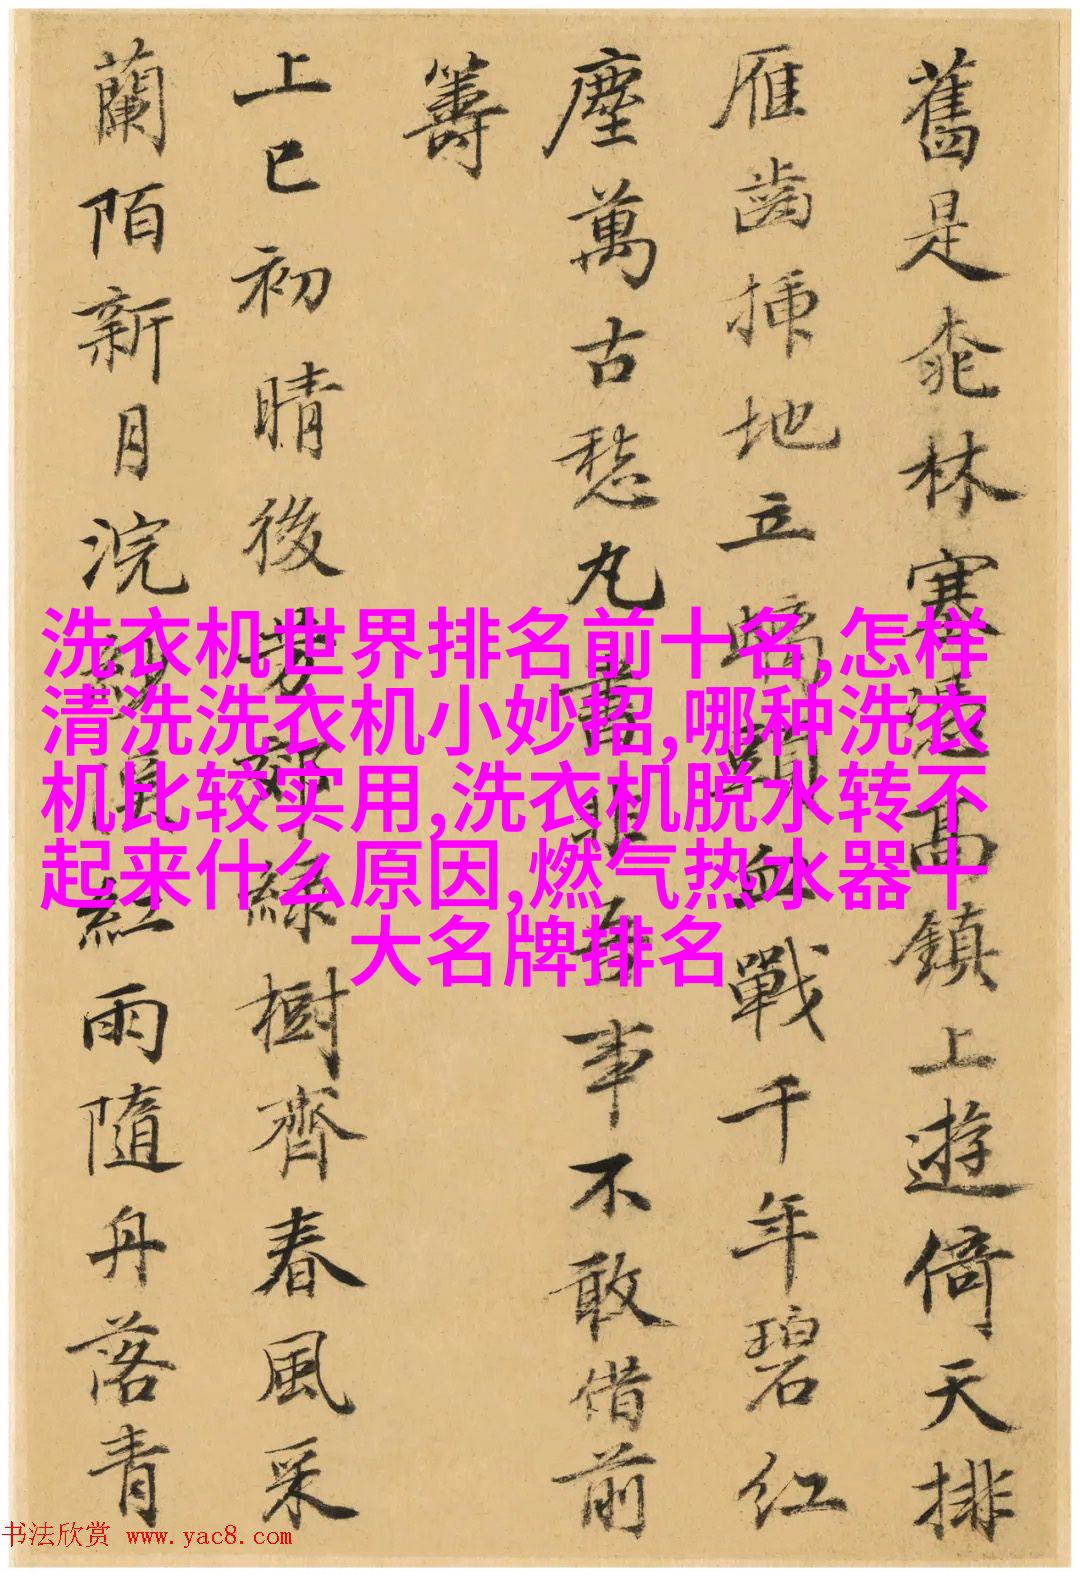 舊是桃林塞憑高鎮上遊倚天排
雁齒插地立螭頭血戰千年碧紅
塵萬古愁丸非吾事不敢借前
籌
上巳初晴後芳郊綠樹齊春風采
蘭陌新月浣紗溪紅雨隨舟落青
洗衣机世界排名前十名,怎样
清洗洗衣机小妙招,哪种洗衣
机比较实用,洗衣机脱水转不
起来什么原因,燃气热水器十
大名牌排名
书法欣赏 www.yac8.com